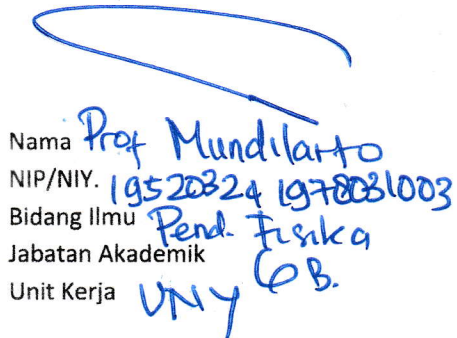 Nama Prof Mundilarto
NIP/NIY. 19520324 1978031003
Bidang Ilmu Pend. Fisika
Jabatan Akademik GB.
Unit Kerja UNY